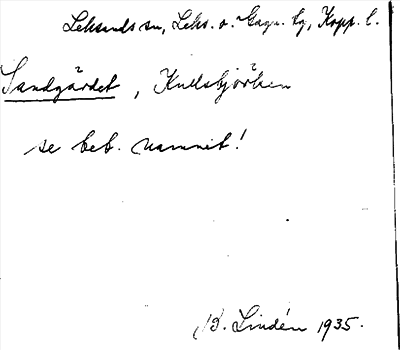 Leksands sn, Leks. o. Gagn. tg, Kopp. l.
Sandgärdet, Kullsbjörken
se beb. namnet!
B. Lindén 1935.